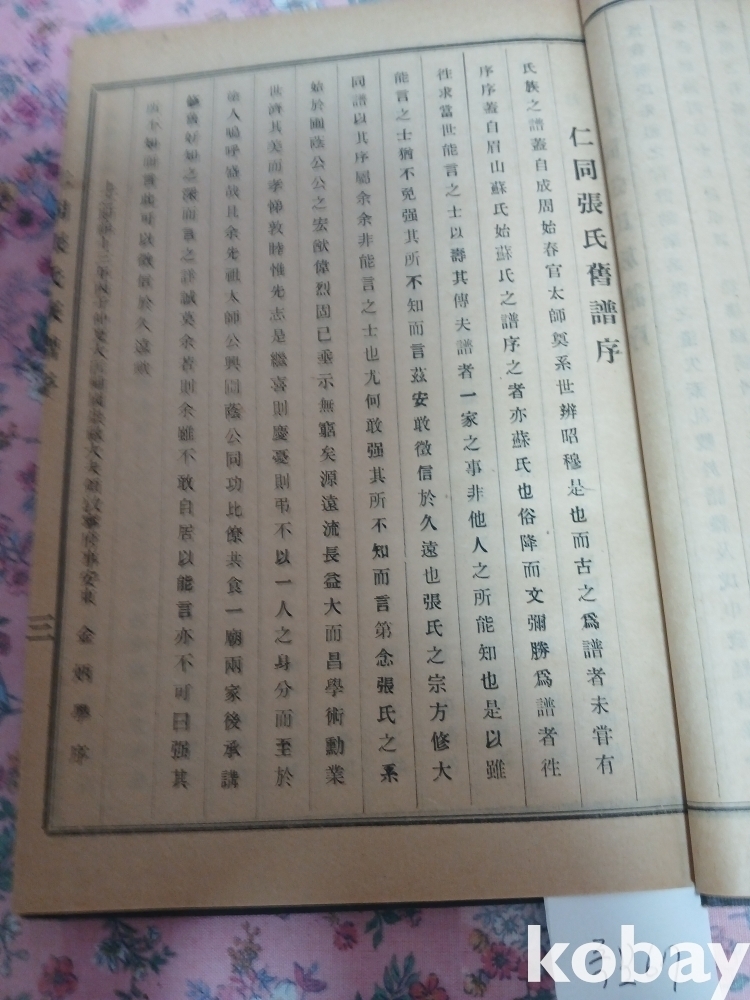 仁同張氏舊譜序
氏族之譜蓋自成周始春官太師奠系世辨昭穆是也而古之爲譜者未甞有
序序蓋自眉山蘇氏始蘇氏之譜序之者亦蘇氏也俗降而文彌勝爲譜者徃
徃求當世能言之士以壽其傳夫譜者一家之事非他人之所能知也是以雖
能言之士猶不免强其所不知而言玆安敢徵信於久遠也張氏之宗方修大
同譜以其序屬余余非能言之士也尤何敢强其所不知而言第念張氏之系
始於 公公之宏猷偉烈固已垂示無窮矣源遠流長益大而昌學術勳業
世濟其美而孝悌敦睦惟先志是繼喜則慶憂則弔不以一人之身分而至於
人嗚呼盛哉且余先祖太師公與 公同功比僚共食一廟兩家後承講
好 之深而 之詳誠莫余若則余雖不敢自居以能言亦不可曰强其
不知而言 可以徵信於久遠歟
金 序
三
kobay